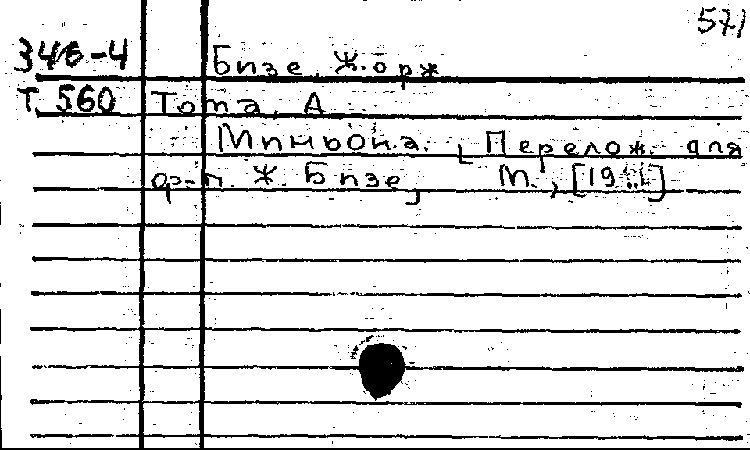 571
346-4 Бизе, Жорж
Т. 560 Тома, А.
Миньона. [Перелож. для
ф-п. Ж. Бизе] М., [19